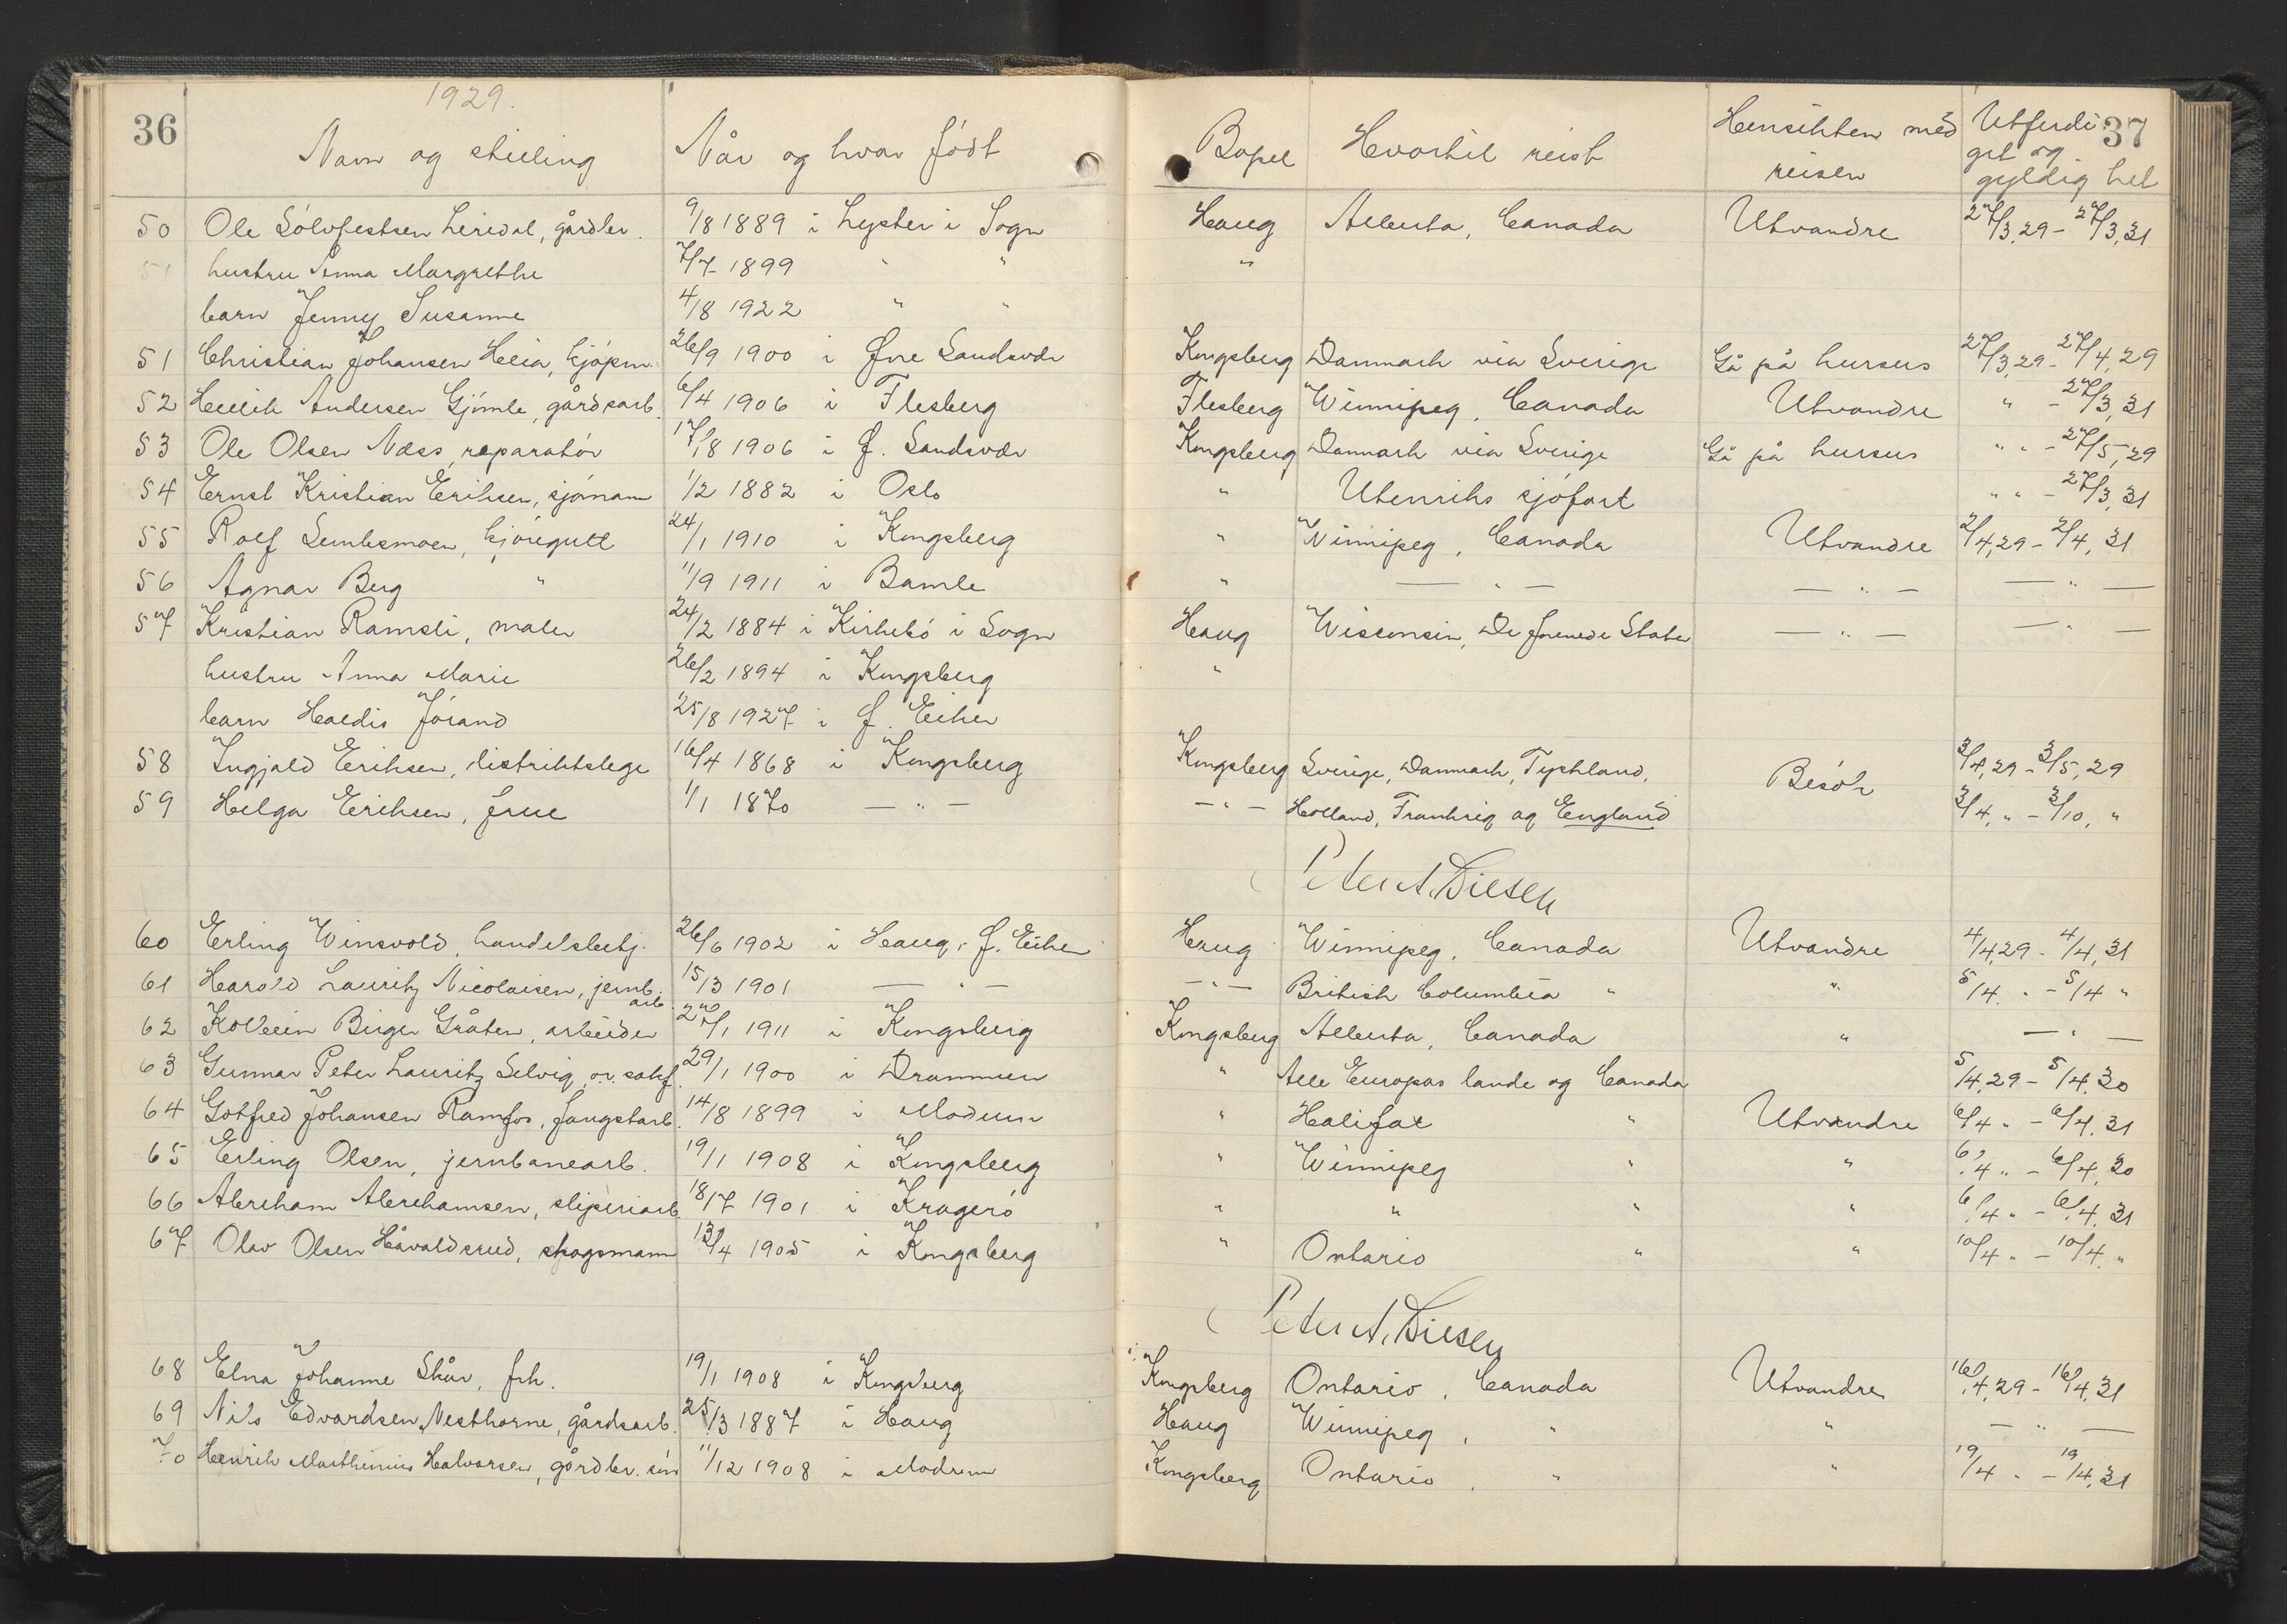 36 1929. 37
Navn og stilling Når og hvor født Bopel Hvortil reist Hensikten med reisen Utferdi get og gyldig til
50 Ole Sølvfestsen Leirdal, gårdbr. 9/8 1889 i Lyster i Sogn Haug Alberta, Canada Utvandre 27/3,29 - 27/3,31
51 hustru Anna Margrethe 7/7 1899 " " "
barn Jenny Susanne 4/8 1922 " "
51 Christian Johansen Heia, kjøpm. 26/9 1900 i Øvre Sandsvær Kongsberg Danmark via Sverige Gå på kursus 27/3,29 - 27/4,29
52 Hellik Andersen Gjømle, gårdsarb. 6/4 1906 i Flesberg Flesberg Winnipeg, Canada Utvandre " - 27/3,31
53 Ole Olsen Næss, reparatør 17/8 1906 i Ø. Sandsvær Kongsberg Danmark via Sverige Gå på kursus " " - 27/5,29
54 Ernst Kristian Eriksen, sjømann 1/2 1882 i Oslo " Utenriks sjøfart " " - 27/3,31
55 Rolf Lembesmoen, kjøregutt 24/1 1910 i Kongsberg " Winnipeg, Canada Utvandre 2/4,29 - 2/4,31
56 Agnar Berg " 11/9 1911 i Bamle " — " — — " — — " —
57 Kristian Ramsli, maler 24/2 1884 i Kirkebø i Sogn Haug Wisconsin, De forenede Stater — " — — " —
hustru Anna Marie 26/2 1894 i Kongsberg "
barn Haldis Jørand 25/8 1927 i Ø. Eiker
58 Ingjald Eriksen, distriktslege 16/4 1868 i Kongsberg Kongsberg Sverige, Danmark, Tyskland, Besøk 3/4,29 - 3/5,29
59 Helga Eriksen, frue 1/1 1870 — " — — " — Holland, Frankrig og England 3/4, " - 3/10, "
Peter A. Diesen
60 Erling Winsvold, handelsbetj. 26/6 1902 i Haug, Ø. Eiker Haug Winnipeg, Canada Utvandre 4/4,29 - 4/4,31
61 Harald Lauritz Nicolaisen, jernb. arb 15/3 1901 — " — — " — British Columbia " " 5/4 " - 5/4 "
62 Kolbein Birger Gråten, arbeider 27/1 1911 i Kongsberg Kongsberg Alberta, Canada " — " —
63 Gunnar Peter Lauritz Selvig, or. sakf. 29/1 1900 i Drammen " Alle Europas lande og Canada 5/4,29 - 5/4,30
64 Gotfred Johansen Ramfos, fangstarb. 14/8 1899 i Modum " Halifax " Utvandre 6/4 " - 6/4,31
65 Erling Olsen, jernbanearb. 19/1 1908 i Kongsberg " Winnipeg " " 6/4 " - 6/4,30
66 Abreham Abrehamsen, sliperiarb. 18/7 1901 i Kragerø " " " " 6/4 " - 6/4,31
67 Olav Olsen Håvaldsrud, skogsmann 13/4 1905 i Kongsberg " Ontario " " 10/4 " - 10/4, "
Peter A. Diesen
68 Elna Johanne Skår, frk. 19/1 1908 i Kongsberg Kongsberg Ontario, Canada Utvandre 16/4,29 - 16/4,31
69 Nils Edvardsen Nesthorne, gårdsarb. 25/3 1887 i Haug Haug Winnipeg, " " — " —
70 Henrik Marthinius Halvorsen, gårdbr. søn 11/12 1908 i Modum Kongsberg Ontario, " " 19/4 " - 19/4,31